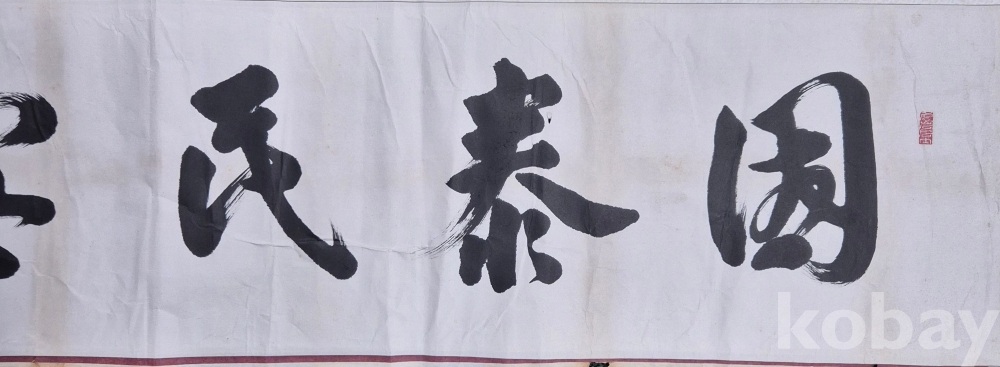 國泰民
kobay